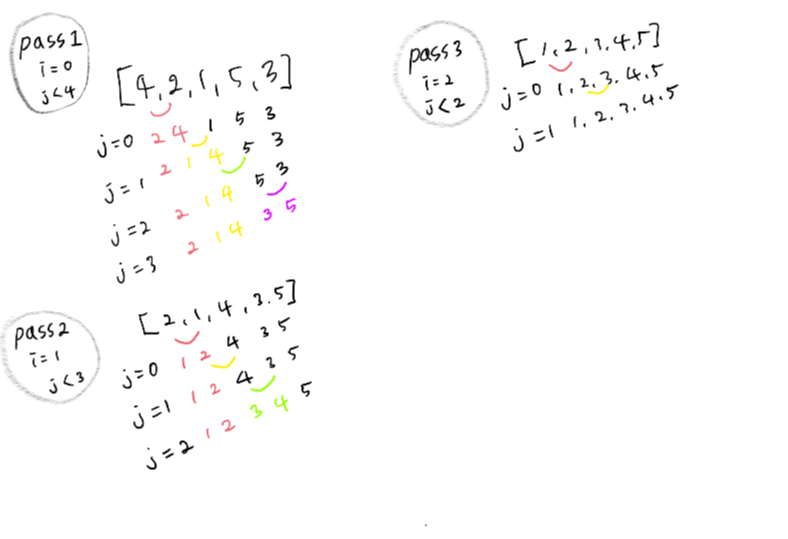 pass1
i=0
j<4
[4,2,1,5,3]
j=0 2 4 1 5 3
j=1 2 1 4 5 3
j=2 2 1 4 5 3
j=3 2 1 4 3 5
pass2
i=1
j<3
[2,1,4,3.5]
j=0 1 2 4 3 5
j=1 1 2 4 3 5
j=2 1 2 3 4 5
pass3
i=2
j<2
[1,2,3.4,5]
j=0 1,2,3.4,5
j=1 1,2,3,4,5